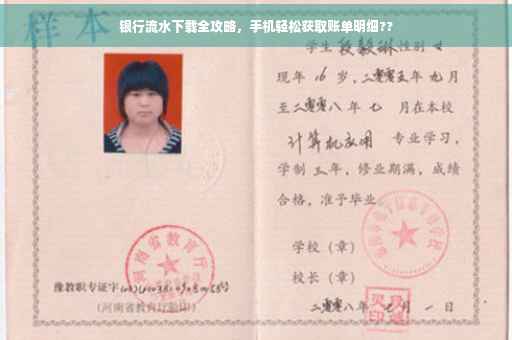 银行流水下载全攻略，手机轻松获取账单明细??
样本
学生 段毅琳 性别 女
现年 16 岁，二零零五年 九 月
至二零零八年 七 月在本校
计算机应用 专业学习，
学制 三 年，修业期满，成绩
合格，准予毕业
学校（章）
校长（章）
二零零八年 七 月 一 日
河南省教育厅
豫教职专证字
（河南省教育厅验印）